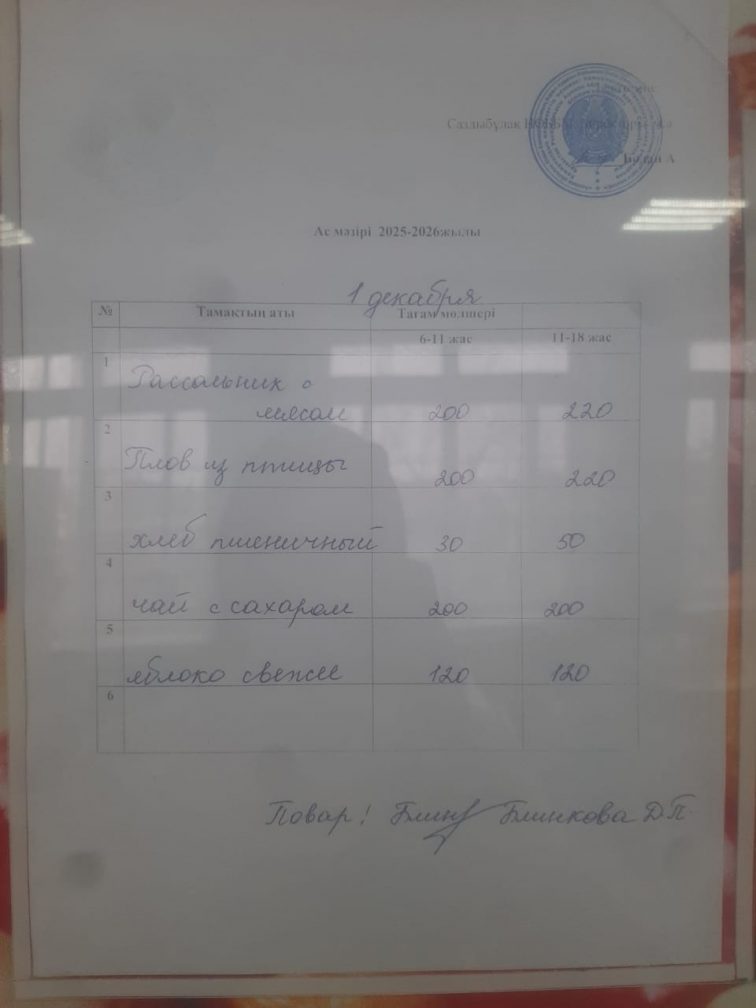 Саздыбұлақ
А
Ас мәзірі 2025-2026жылы
1 декабря
№ Тамақтың аты Тағам мөлшері
6-11 жас 11-18 жас
1 Рассольник с
мясом 200 220
2 Плов из птицы 200 220
3 хлеб пшеничный 30 50
4 чай с сахаром 200 200
5 яблоко свежее 120 120
6
Повар! Блинкова Д.П.